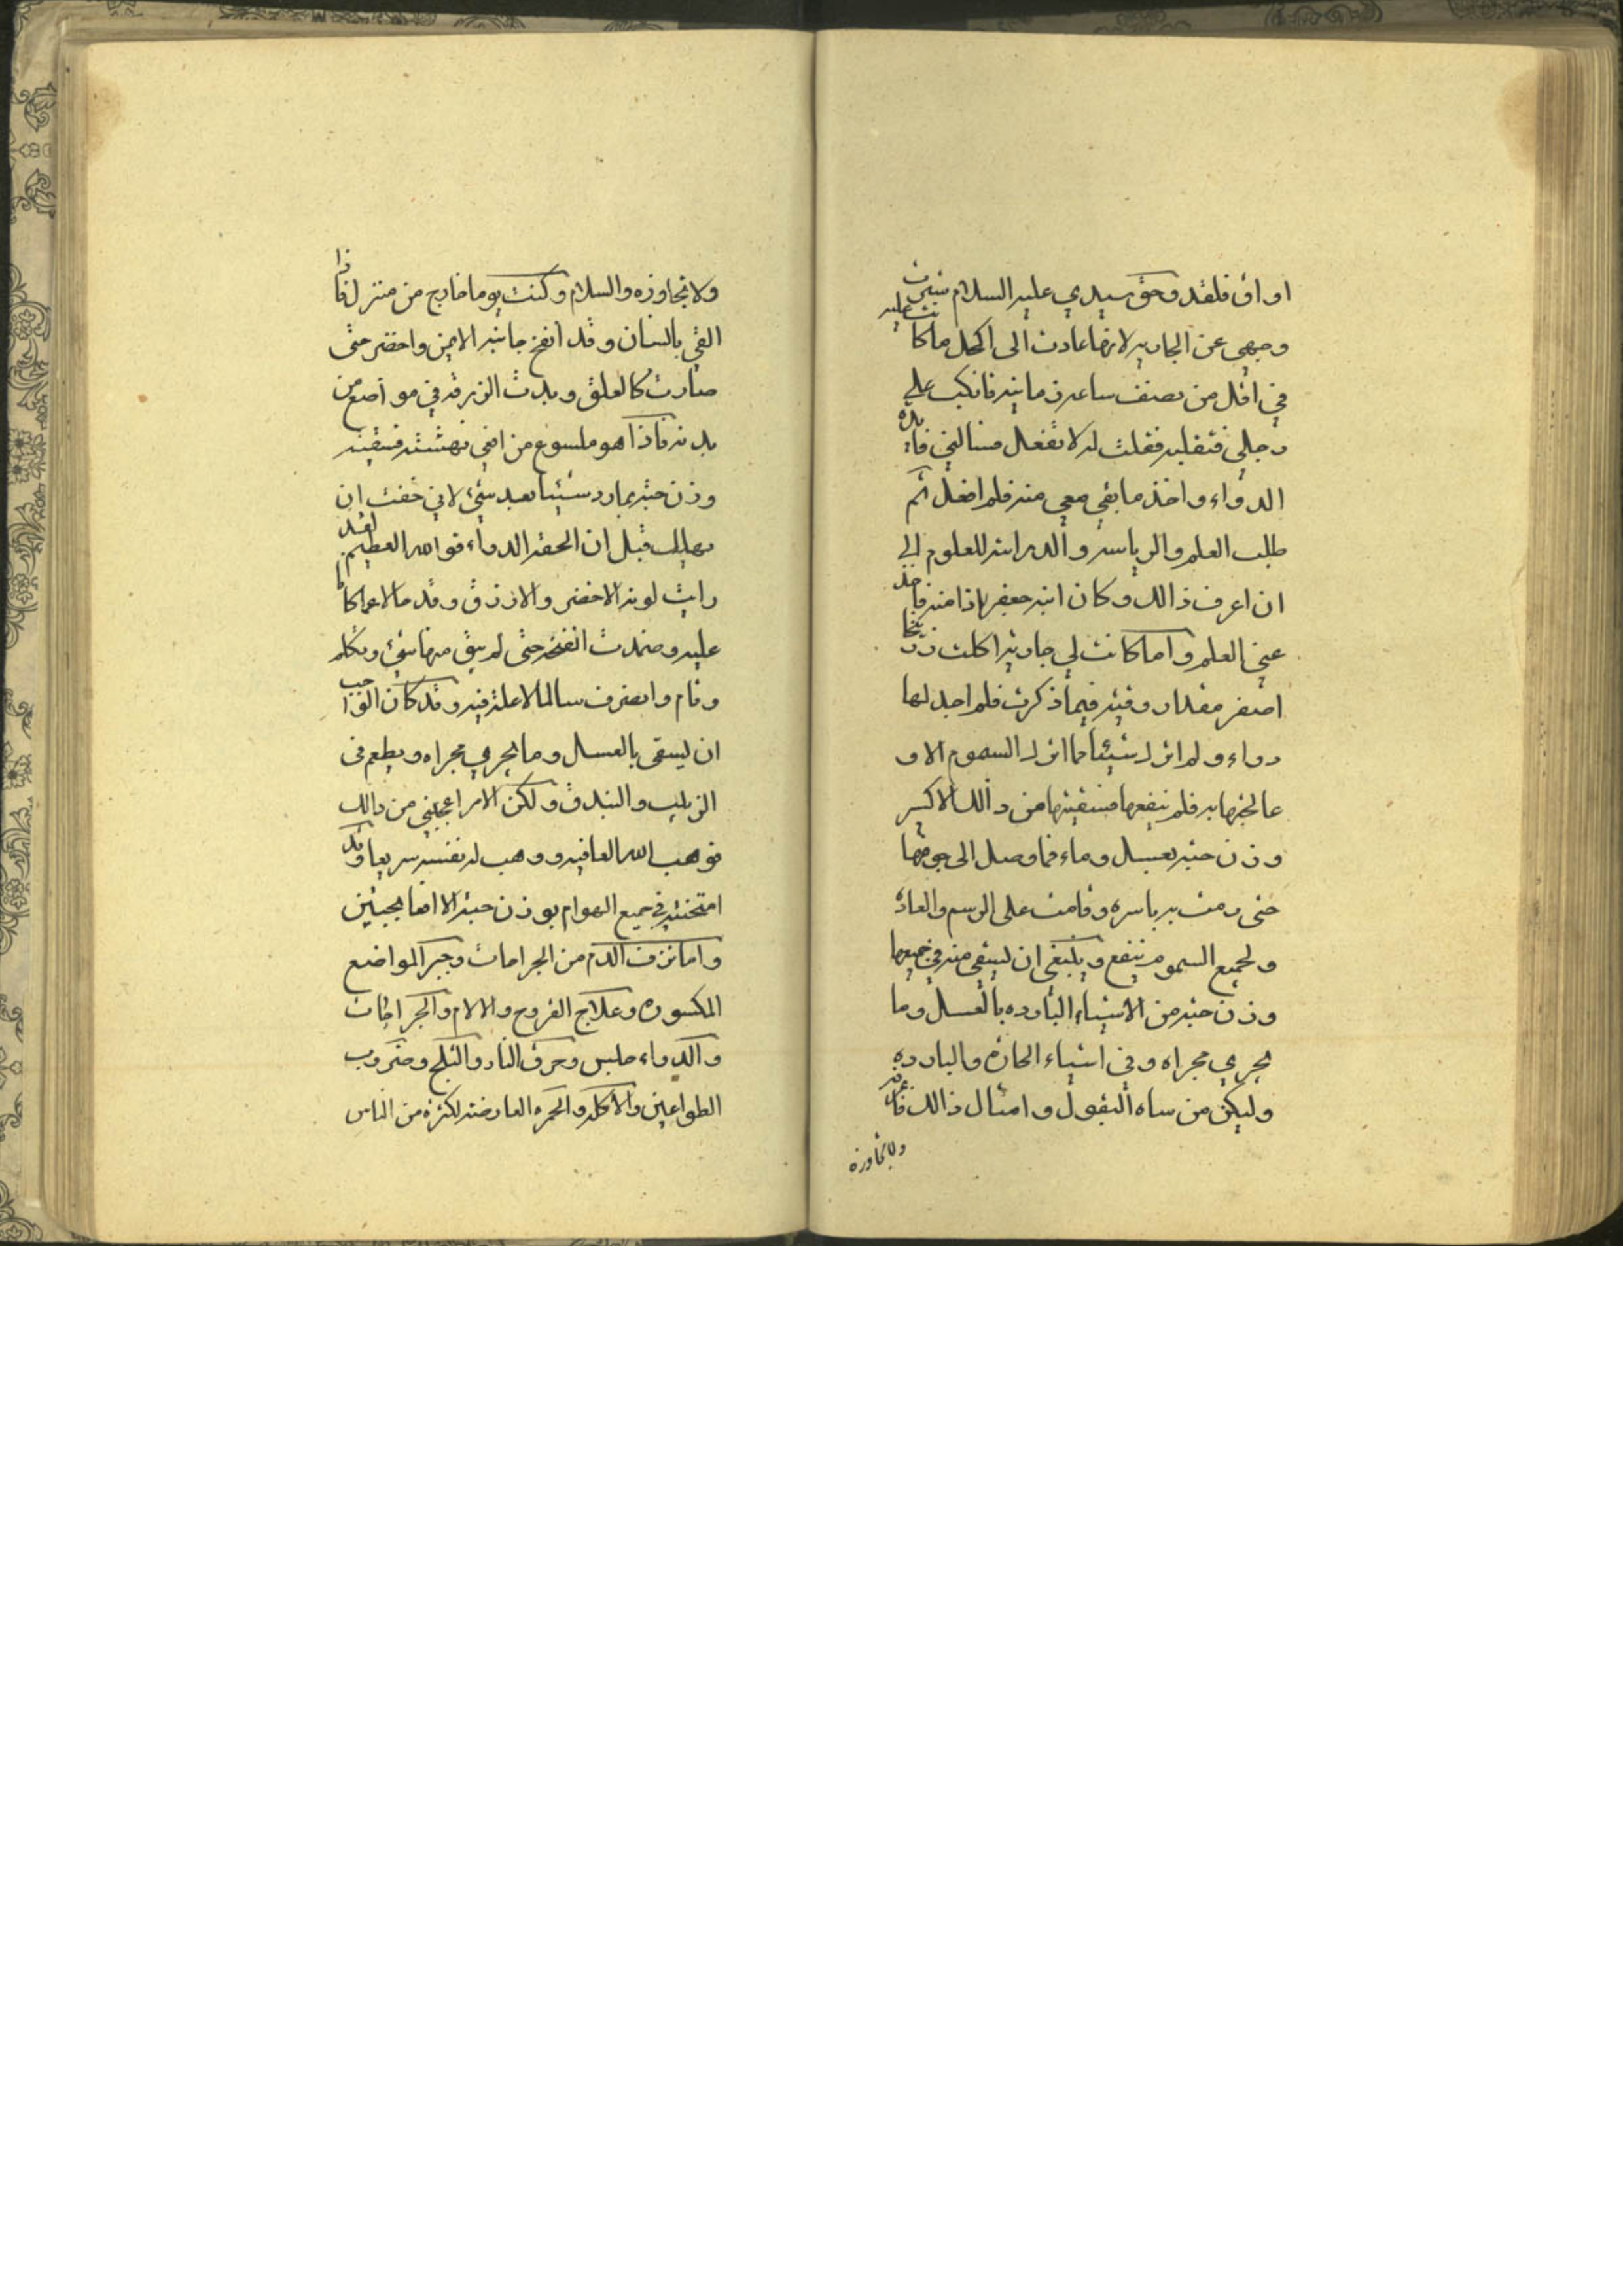 اواق فلقد وحق سيدي عليه السلام سترت
وجهي عن الجاريه لانها عادت الى اكمل ما كانت عليه
في اقل من نصف ساعه زمانيه فانكب على
رجلي فقبله فقلت له لا تفعل فسالني فايده
الدواء واخذ ما بقي معي منه فلم افعل ثم
طلب العلم والرياسه والدراسه للعلوم الى
ان اعرف ذالك وكان ابنه جعفر
عني العلم واما كانت لي جاريه اكلت زرنيخا
اصفر مقدار وقيه فيما ذكرت فلم اجد لها
دواء ولم اترك شيئا مما اترك السموم الا و
عالجتها به فلم ينفعها فسقيتها من ذالك الاكسر
وزن حبه بعسل وماء فما وصل الى جوفها
حتى رمت به باسره وقامت على الرسم والعاده
ولجميع السموم ينفع وينبغي ان يسقى منه في جميعها
وزن حبه من الاشياء البارده بالعسل وما
يجري مجراه وفي اشياء الحاره والبارده
وليكن من ساه البقول وامثال ذالك
ولا تجاوزه
ولا تجاوزه والسلام وكنت يوما خارج من منزل فاذا
القي بالسان وقد انفخ جانبه الايمن واخضر حتى
صارت كالعلق وبدت الزرقه في مواضع من
بدنه فاذا هو ملسوع من افعى نهشته فسقيته
وزن حبه بمارد شيئا بعد شيئ لاني خفت ان
يهلك قبل ان الحقه الدواء فوالله العظيم لقد
رايت لونه الاخضر والازرق وقد حالا عما كانا
عليه وضمدت النفخه حتى لم يبق منها شيئ وتكلم
وقام وانصرف سالما لا علة فيه وقد كان الواجب
ان يسقى بالعسل وما يجري مجراه ويطعم في
الزبيب والبندق ولكن الامر اعجلني من ذالك
فوهب الله العافيه ووهب له نفسه سريعا وقد
امتحنته في جميع الهوام بوزن حبه الا افعا بحبتين
واما نزف الدم من الجراحات وجبر المواضع
المكسوره وعلاج القروح والالام والجراحات
والدواء حلبس وحرق النار والثلج وضروب
الطواعين والاكله والحمره العارضه لكثره من الناس